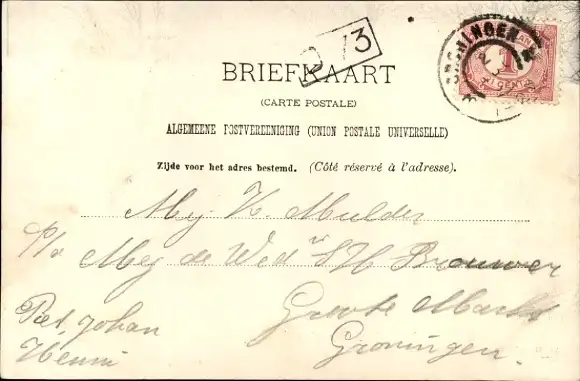 3
GRONINGEN
1
CENT
BRIEFKAART
(CARTE POSTALE)
ALGEMEENE POSTVEREENIGING (UNION POSTALE UNIVERSELLE)
Zijde voor het adres bestemd. (Côté réservé à l'adresse).
Mej. K. Mulder
P/a Mej de Wed SH Brouwer
Groote Markt
Groningen.
Piet, Johan
Henni